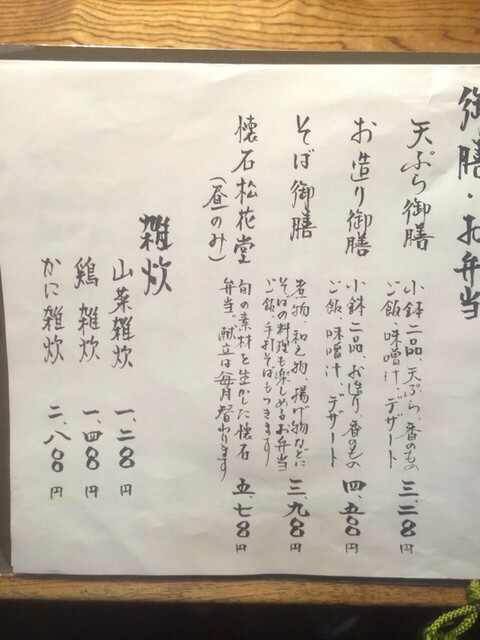 御膳・お弁当
天ぷら御膳
小鉢二品、天ぷら、香のもの
ご飯、味噌汁、デザート
三、二〇〇円
お造り御膳
小鉢二品、お造り、香のもの
ご飯、味噌汁、デザート
四、五〇〇円
そば御膳
煮物、和え物、揚げ物などに
そばの料理も楽しめるお弁当
ご飯、手打そばもつきます
三、九〇〇円
懐石松花堂
(昼のみ)
旬の素材を生かした懐石
弁当。献立は毎月替わります
五、七〇〇円
雑炊
山菜雑炊
一、二〇〇円
鶏雑炊
一、四〇〇円
かに雑炊
二、八〇〇円